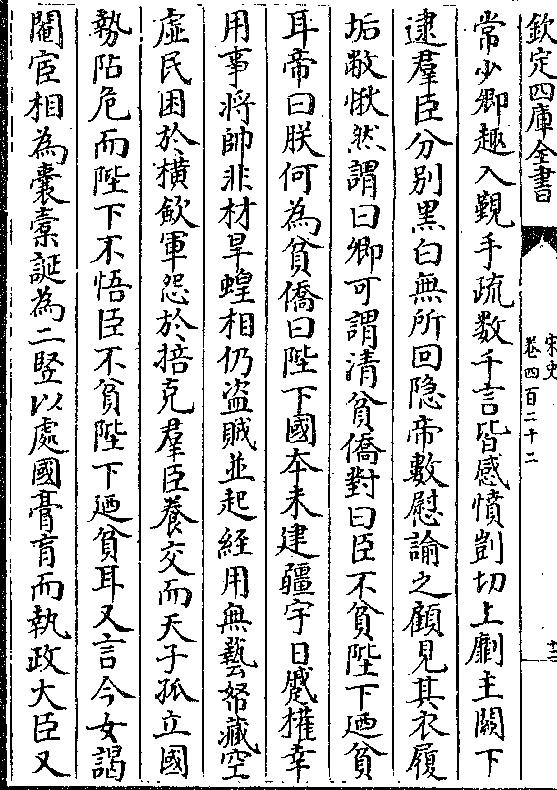 欽定四庫全書
宋史
卷四百二十二
常少卿趣入觐手疏數千言皆感憤剴切上劘主闕下
逮羣臣分别黑白無所回隐帝數慰諭之顧見其衣履
垢敝愀然謂曰卿可謂清貧僑對曰臣不貧陛下廼貧
耳帝曰朕何為貧僑曰陛下國本未建疆宇日蹙權幸
用事将帥非材旱蝗相仍盗賊並起經用無藝帑藏空
虚民困於横斂軍怨於掊克羣臣養交而天子孤立國
勢阽危而陛下不悟臣不貧陛下廼貧耳又言今女謁
閹宦相為囊橐誕為二豎以處國膏肓而執政大臣又